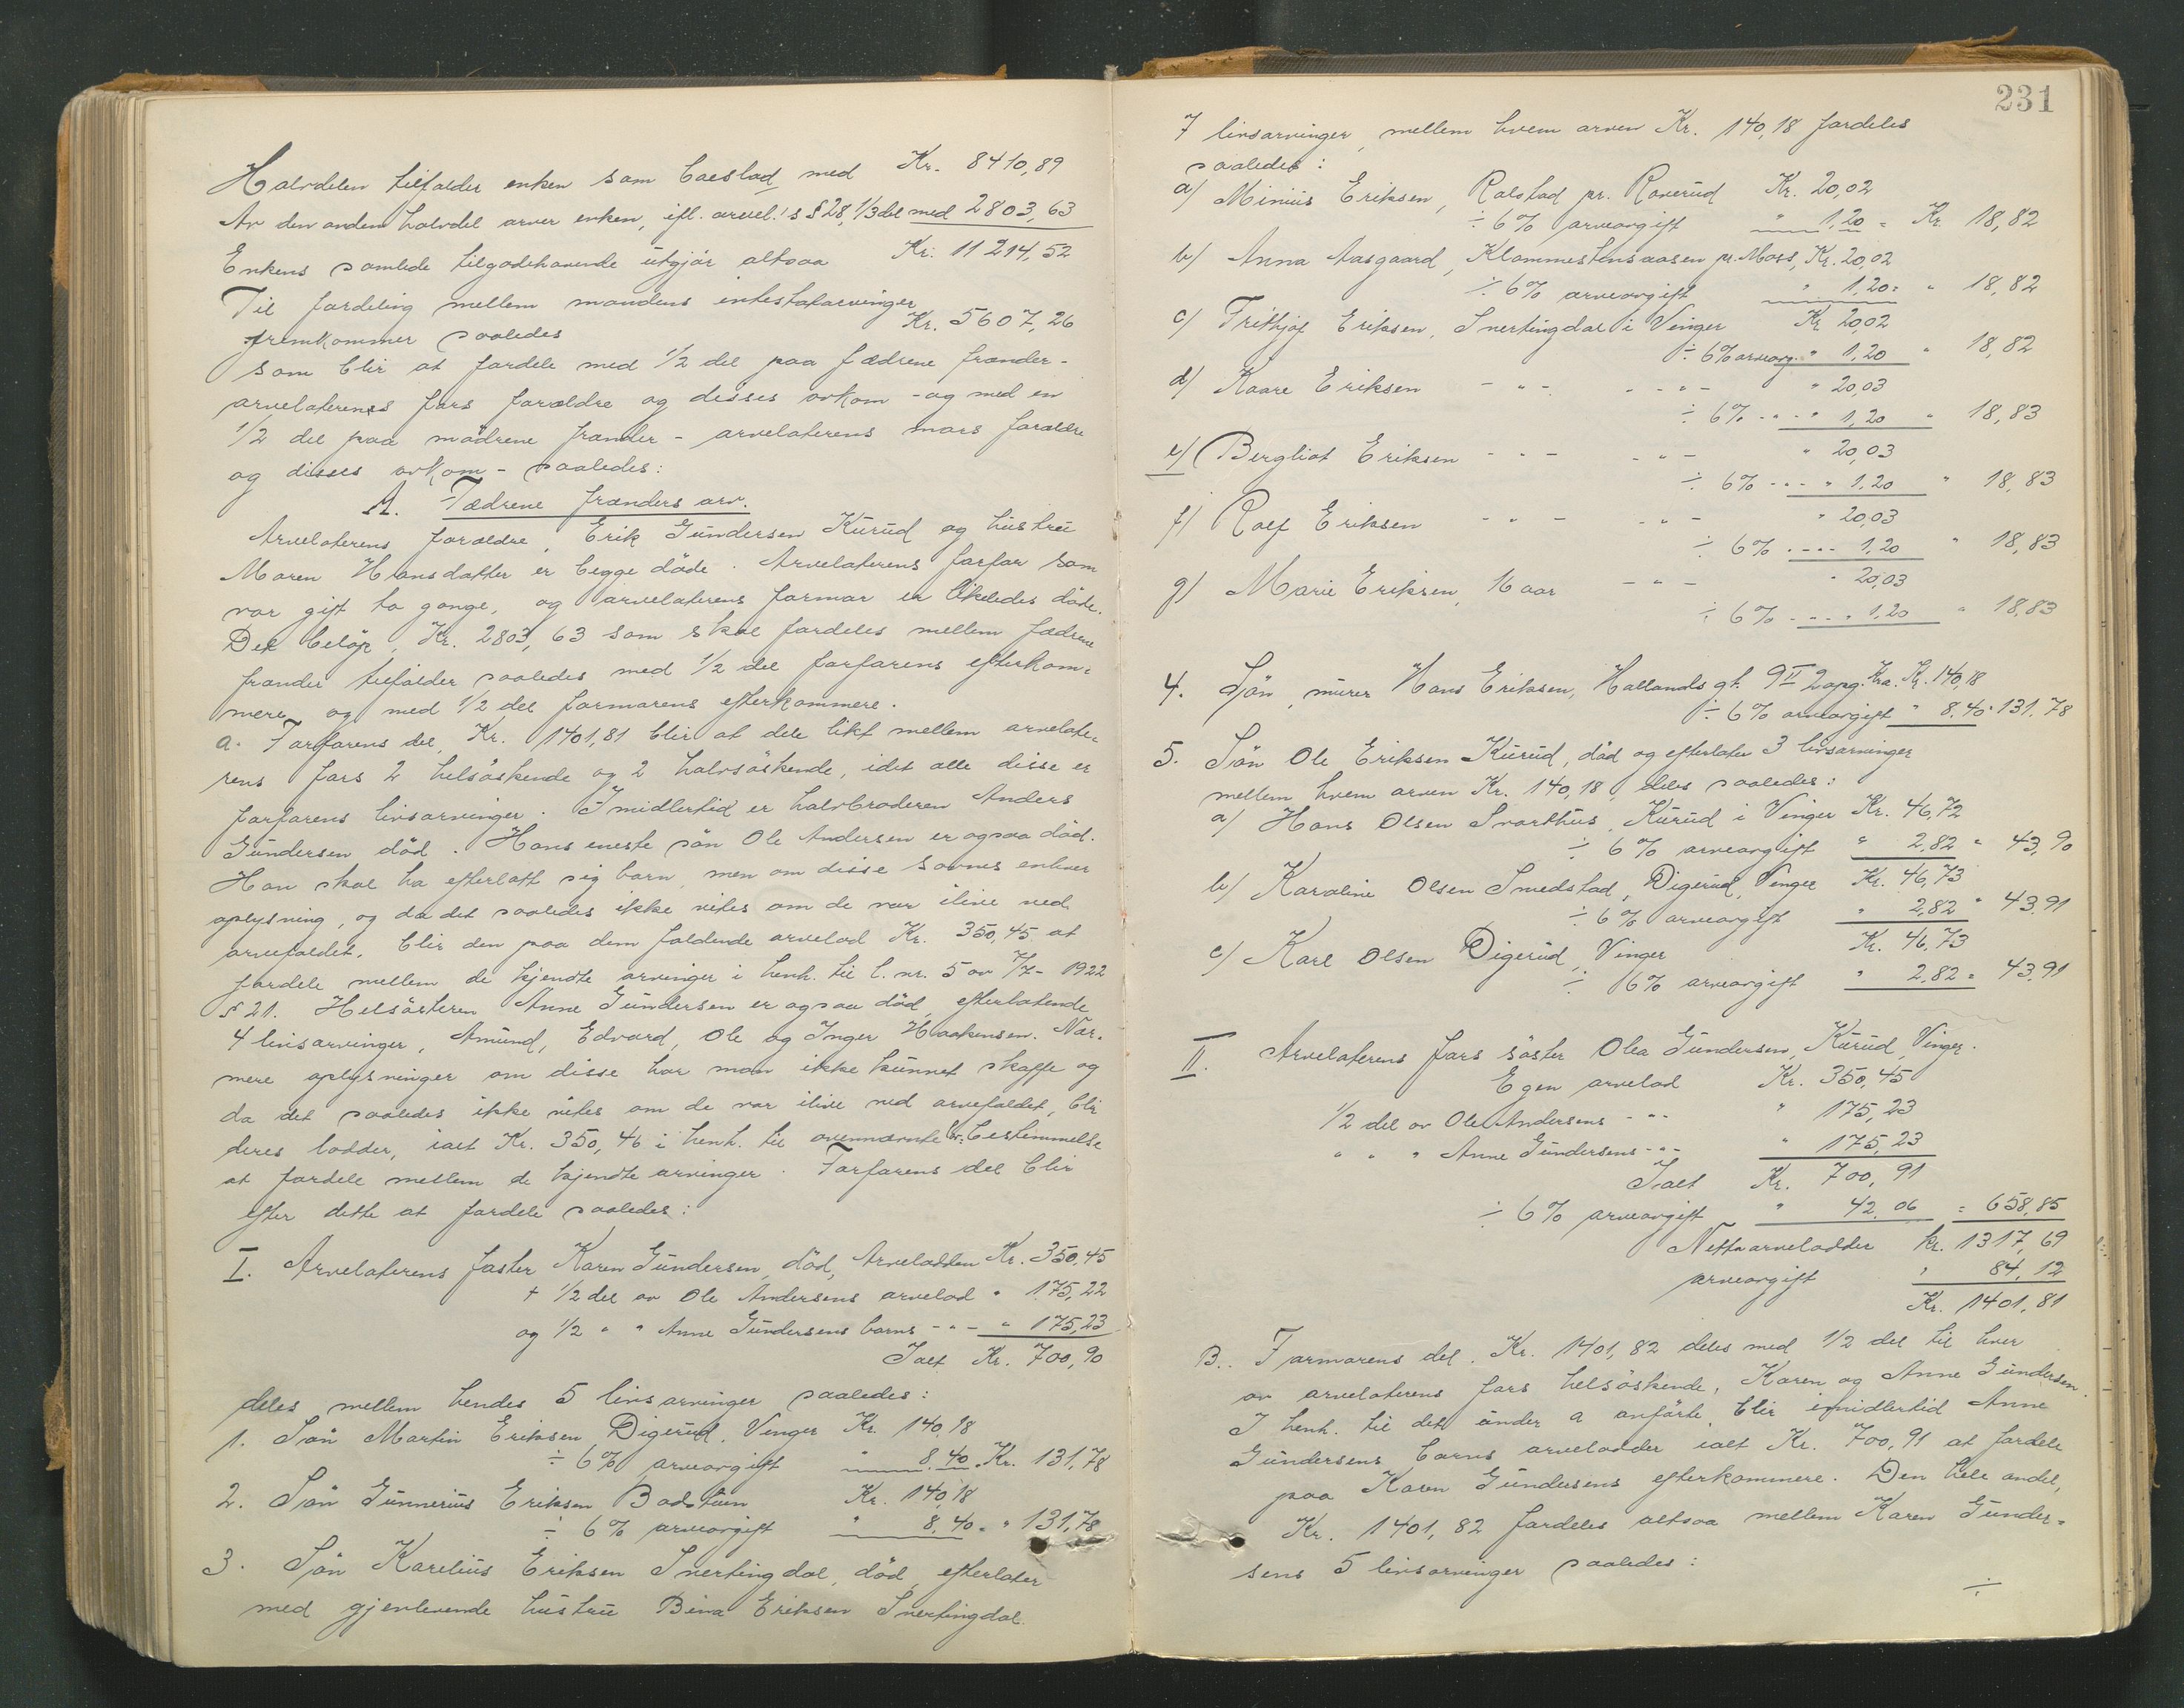 Halvdelen tilfalder enken som boeslod med Kr. 8410,89
Av den anden halvdel arver enken, ifl. arvel.'s § 28, 1/3 del med 2803,63
Enkens samlede tilgodehavende utgjør altsaa Kr. 11214,52
Til fordeling mellem mandens intestatarvinger
fremkommer saaledes Kr. 5607,26
som blir at fordele med 1/2 del paa fædrene frænder -
arvelaterens fars forældre og disses avkom - og med en
1/2 del paa mødrene frænder - arvelaterens mors forældre
og disses avkom - saaledes:
A. Fædrene frænders arv.
Arvelaterens forældre, Erik Gundersen Kurud og hustru
Maren Hansdatter er begge døde. Arvelaterens farfar som
var gift to gange, og arvelaterens farmor er likeledes døde.
Det beløp, Kr. 2803,63 som skal fordeles mellem fædrene
frænder tilfalder saaledes med 1/2 del farfarens efterkom-
mere og med 1/2 del farmorens efterkommere.
a. Farfarens del, Kr. 1401,81 blir at dele likt mellem arvelate-
rens fars 2 helsøskende og 2 halvsøskende, idet alle disse er
farfarens livsarvinger. Imidlertid er halvbroderen Anders
Gundersen død. Hans eneste søn Ole Andersen er ogsaa død.
Han skal ha efterlatt sig barn, men om disse savnes enhver
oplysning, og da det saaledes ikke vites om de var ilive ved
arvefaldet, blir den paa dem faldende arvelod Kr. 350,45 at
fordele mellem de kjendte arvinger i henh. til l. nr. 5 av 7/7- 1922
§ 21. Helsøsteren Anne Gundersen er ogsaa død, efterlatende
4 livsarvinger, Amund, Edvard, Ole og Inger Haakensen. Nær-
mere oplysninger om disse har man ikke kunnet skaffe og
da det saaledes ikke vites om de var ilive ved arvefaldet, blir
deres lodder, ialt Kr. 350,46 i henh. til ovennævnte bestemmelse
at fordele mellem de kjendte arvinger. Farfarens del blir
efter dette at fordele saaledes:
I. Arvelaterens faster Karen Gundersen, død, Arvelodden Kr. 350,45
+ 1/2 del av Ole Andersens arvelod " 175,22
og 1/2 " " Anne Gundersens barns - " - " 175,23
Ialt Kr. 700,90
deles mellem hendes 5 livsarvinger saaledes:
1. Søn Martin Eriksen Digerud, Vinger Kr. 140,18
÷ 6% arveavgift " 8.40 Kr. 131,78
2. Søn Gunnerius Eriksen Badstuen Kr. 140,18
÷ 6% arveavgift " 8.40 = " 131,78
3. Søn Karelius Eriksen Snertingdal, død, efterlater
med gjenlevende hustru Bina Eriksen Snertingdal
231
7 livsarvinger, mellem hvem arven Kr. 140,18 fordeles
saaledes:
a/ Minius Eriksen, Rolstad pr. Roverud Kr. 20,02
÷ 6% arveavgift " 1,20 = Kr. 18,82
b/ Anna Aasgaard, Klommestensaasen pr. Moss, Kr. 20,02
÷ 6% arveavgift " 1,20 = " 18,82
c/ Frithjof Eriksen, Snertingdal i Vinger Kr 20,02
÷ 6% arveavg. " 1,20 " 18,82
d/ Kaare Eriksen - " - - " - " 20,03
÷ 6% - " - " 1,20 " 18,83
e/ Bergliot Eriksen - " - - " - " 20,03
÷ 6% - " - " 1,20 " 18,83
f/ Rolf Eriksen - " - - " - " 20,03
÷ 6% - " - 1,20 " 18,83
g/ Marie Eriksen, 16 aar - " - " 20,03
÷ 6% - " - " 1,20 " 18,83
4. Søn, murer Hans Eriksen, Hallands gt. 9 II 2 opg. Kra. Kr. 140,18
÷ 6% arveavgift " 8.40 " 131,78
5. Søn Ole Eriksen Kurud, død og efterlater 3 livsarvinger
mellem hvem arven Kr. 140,18, deles saaledes:
a/ Hans Olsen Svarthus, Kurud i Vinger Kr. 46,72
÷ 6% arveavgift " 2,82 " 43,90
b/ Karoline Olsen Smedstad, Digerud, Vinger Kr. 46,73
÷ 6% arveavgift " 2,82 " 43,91
c/ Karl Olsen Digerud, Vinger Kr. 46,73
÷ 6% arveavgift " 2,82 = 43,91
II. Arvelaterens fars søster Olea Gundersen, Kurud, Vinger.
Egen arvelod Kr. 350,45
1/2 del av Ole Andersens - " - " 175,23
" " " Anne Gundersens - " - " 175,23
Ialt Kr. 700,91
÷ 6% arveavgift " 42.06 = 658,85
Nettoarvelodder kr. 1317,69
arveavgift " 84,12
Kr. 1401,81
B. Farmorens del. Kr. 1401,82 deles med 1/2 del til hver
av arvelaterens fars helsøskende, Karen og Anne Gundersen.
I henh. til det under a anførte, blir imidlertid Anne
Gundersens barns arvelodder ialt Kr. 700,91 at fordele
paa Karen Gundersens efterkommere. Den hele andel,
Kr. 1401,82 fordeles altsaa mellem Karen Gunder-
sens 5 livsarvinger saaledes:
÷